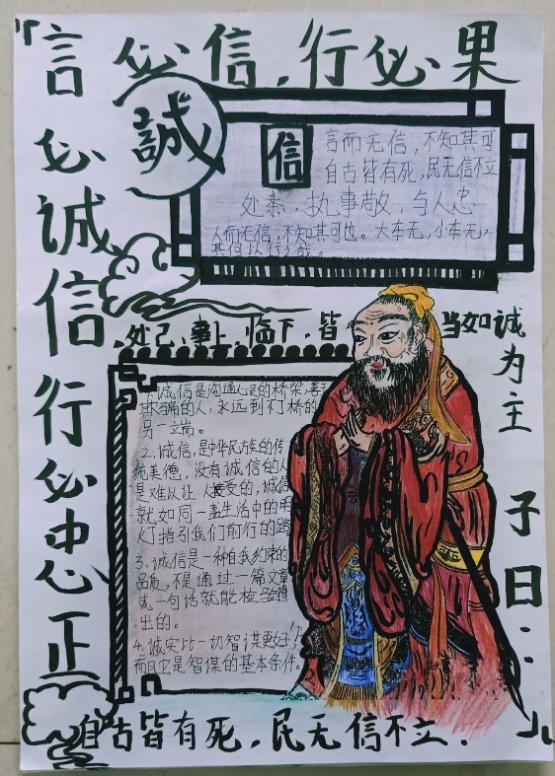 言必信,行必果
言必诚信行必忠正
誠
信
言而无信,不知其可
自古皆有死,民无信不立
执事敬,与人忠
人而无信,不知其可也。大车无,小车无
其何以行之哉
处己,事上,临下,皆
当如诚
为主
子曰:
1.诚信是沟通心灵的桥梁,善于
欺骗的人,永远到不了桥的
另一端。
2.诚信,是中华民族的传
统美德,没有诚信的人
是难以让人接受的,诚信
就如同一盏生活中的明
灯指引我们前行的路
3.诚信是一种自我约束的
品质,不是通过一篇文章
或一句话就能检验得
出的。
4.诚实比一切智谋更好,
而且它是智谋的基本条件。
自古皆有死,民无信不立.